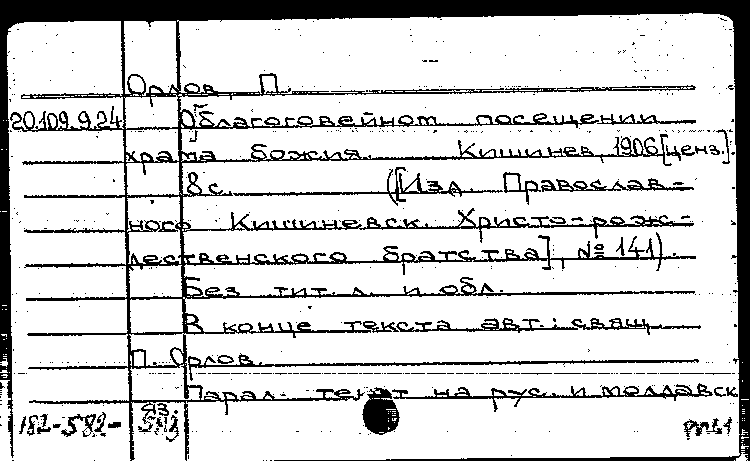 Орлов, П.
20.109.9.24 О благоговейном посещении
храма божия. Кишинев, 1906 [ценз.].
8 с. ([Изд. Православ-
ного Кишиневск. Христо-рож-
дественского братства], № 141).
Без тит. л. и обл.
В конце текста авт.: свящ.
П. Орлов.
Парал. текст на рус. и молдавск
яз.
182-582-